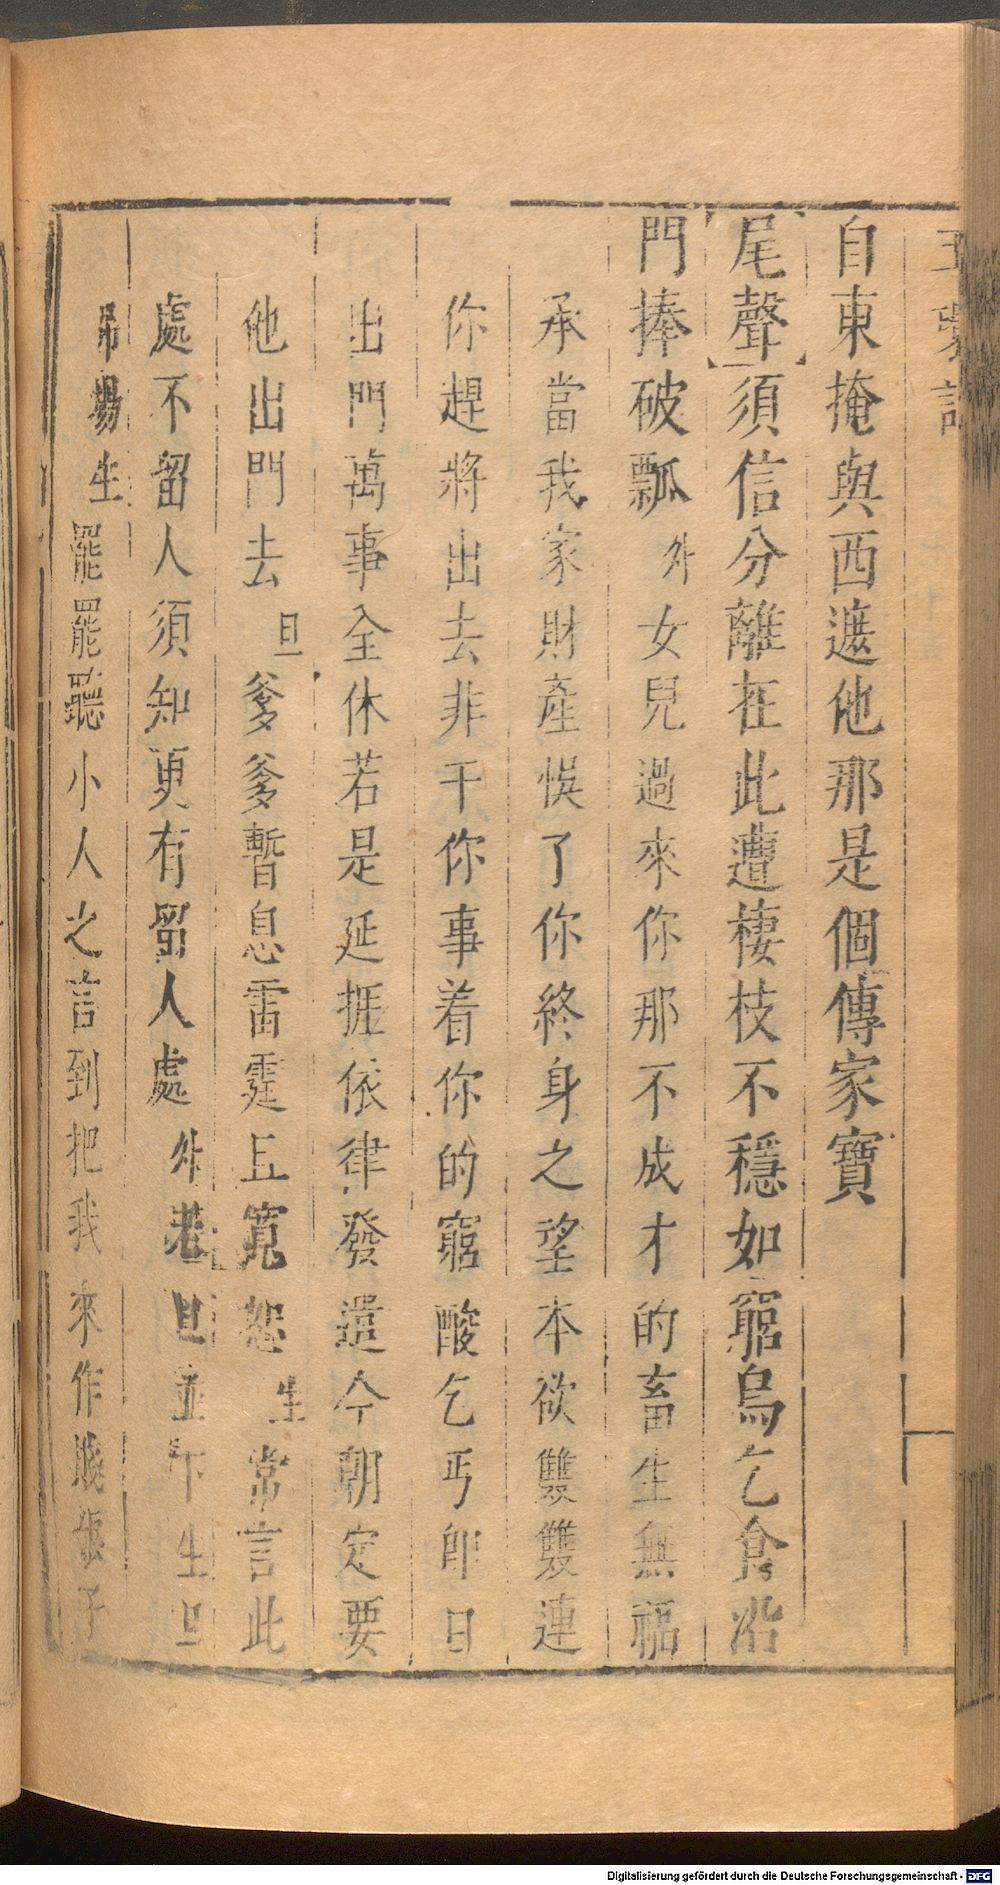 自東掩與西遮他那是個傳家寶
尾聲須信分離在此遭棲枝不穩如窮鳥乞食沿
門捧破瓢外女兒過來你那不成才的畜生無福
承當我家財產悞了你終身之望本欲雙雙連
你趕將出去非干你事着你的窮酸乞丐卽日
出門萬事全休若是延捱依律發遣今朝定要
他出門去旦爹爹暫息雷霆且寬恕生常言此
處不留人須知更有留人處外老旦並下生旦
吊場生罷罷聽小人之言到把我來作賤
Digitalisierung gefördert durch die Deutsche Forschungsgemeinschaft - DFG